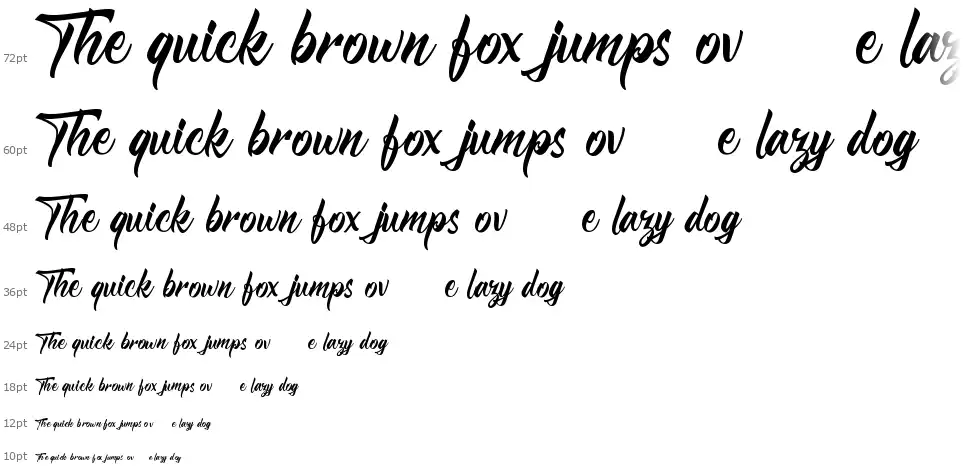 72pt The quick brown fox jumps ov e laz
60pt The quick brown fox jumps ov e lazy dog
48pt The quick brown fox jumps ov e lazy dog
36pt The quick brown fox jumps ov e lazy dog
24pt The quick brown fox jumps ov e lazy dog
18pt The quick brown fox jumps ov e lazy dog
12pt The quick brown fox jumps ov e lazy dog
10pt The quick brown fox jumps ov e lazy dog